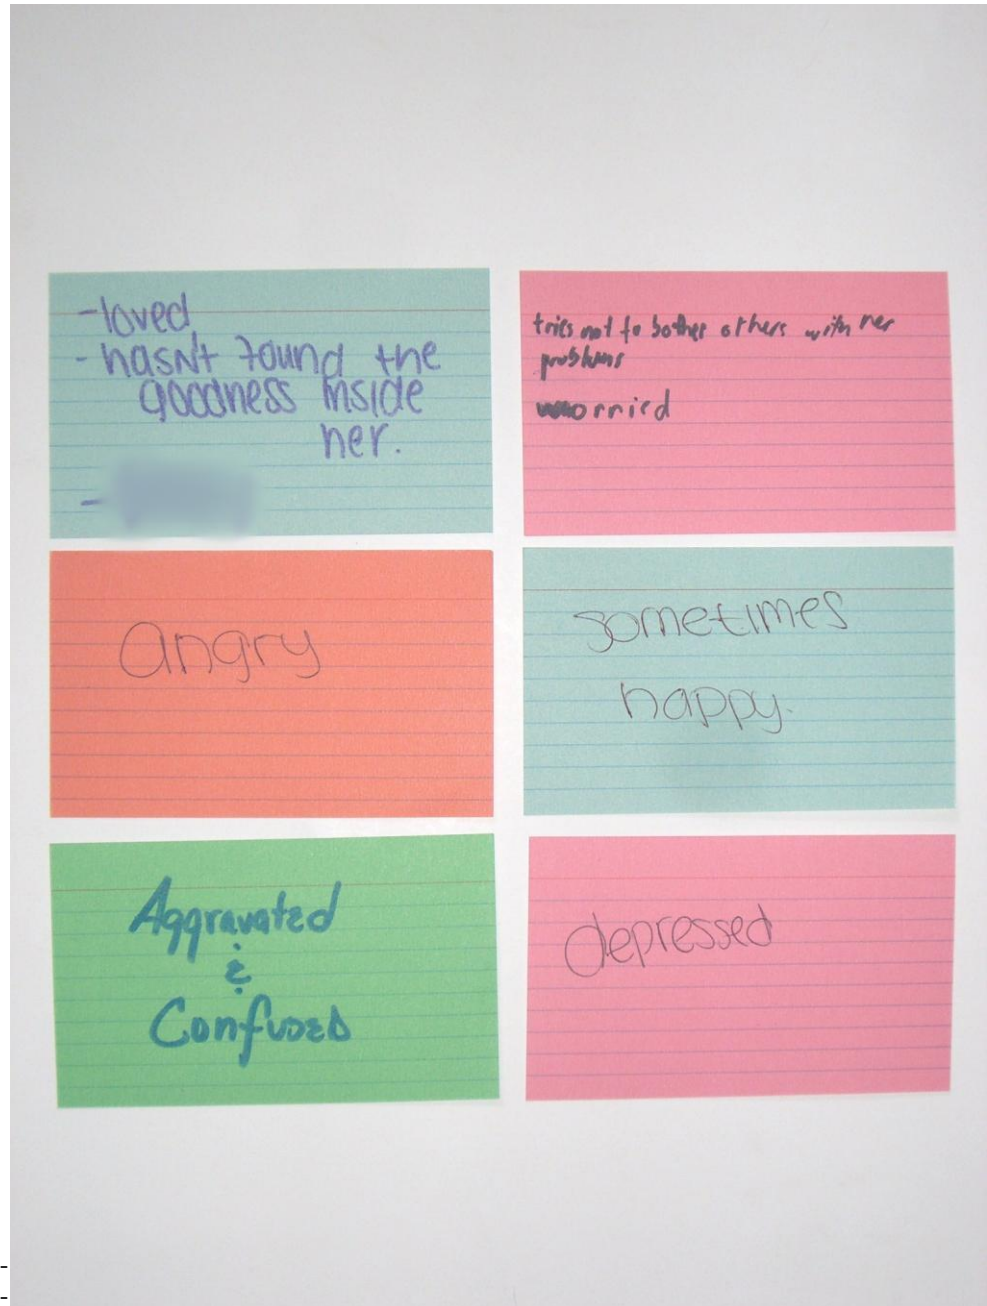 -loved
- hasn't found the
goodness inside
her.
-
tries not to bother others with her
problems
worried
angry
sometimes
happy.
Aggravated
&
Confused
depressed